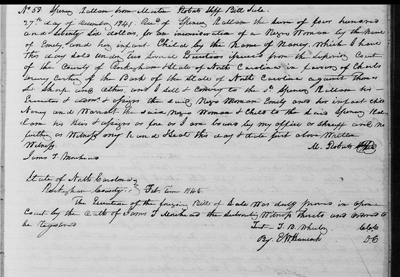 No 58 Spency Rattam from Martin Roberts Shff Bill Sale
27th day of December 1841. Recd of Spency Rattam the sum of four hundred
and sixty six dollars, for an in consideration of a Negro Woman by the Name
of Emely and her infant Child by the Name of Nancy, which I have
this day sold under two several Executions issued from the Superior Court
of the County of Rockingham State of North Carolina in favor of Charles
Cashier of the Bank of the State of North Carolina against Thomas
L. Sharp and others, and I sell & convey to the sd Spency Rattam his
Executors & Admrs & assigns the said Negro Woman Emely and her infant child
Nancy and Warrant the said Negro Woman & Child to the said Spency Rat
tam his Heirs & assigns as far as I am bound by my office as Sheriff and no
further as Witness my hand and Seal this day & date first above Written
Witness M. Roberts Shff
James T. Morehead
State of North Carolina
Rockingham County Feb Term 1845
The Execution of the foregoing Bill of Sale was duly proven in open
Court by the oath of James T Morehead the subscribing Witness thereto and ordered to
be Registered Test T. B. Wheeler C.C.C.
By E W Hancock D.C.